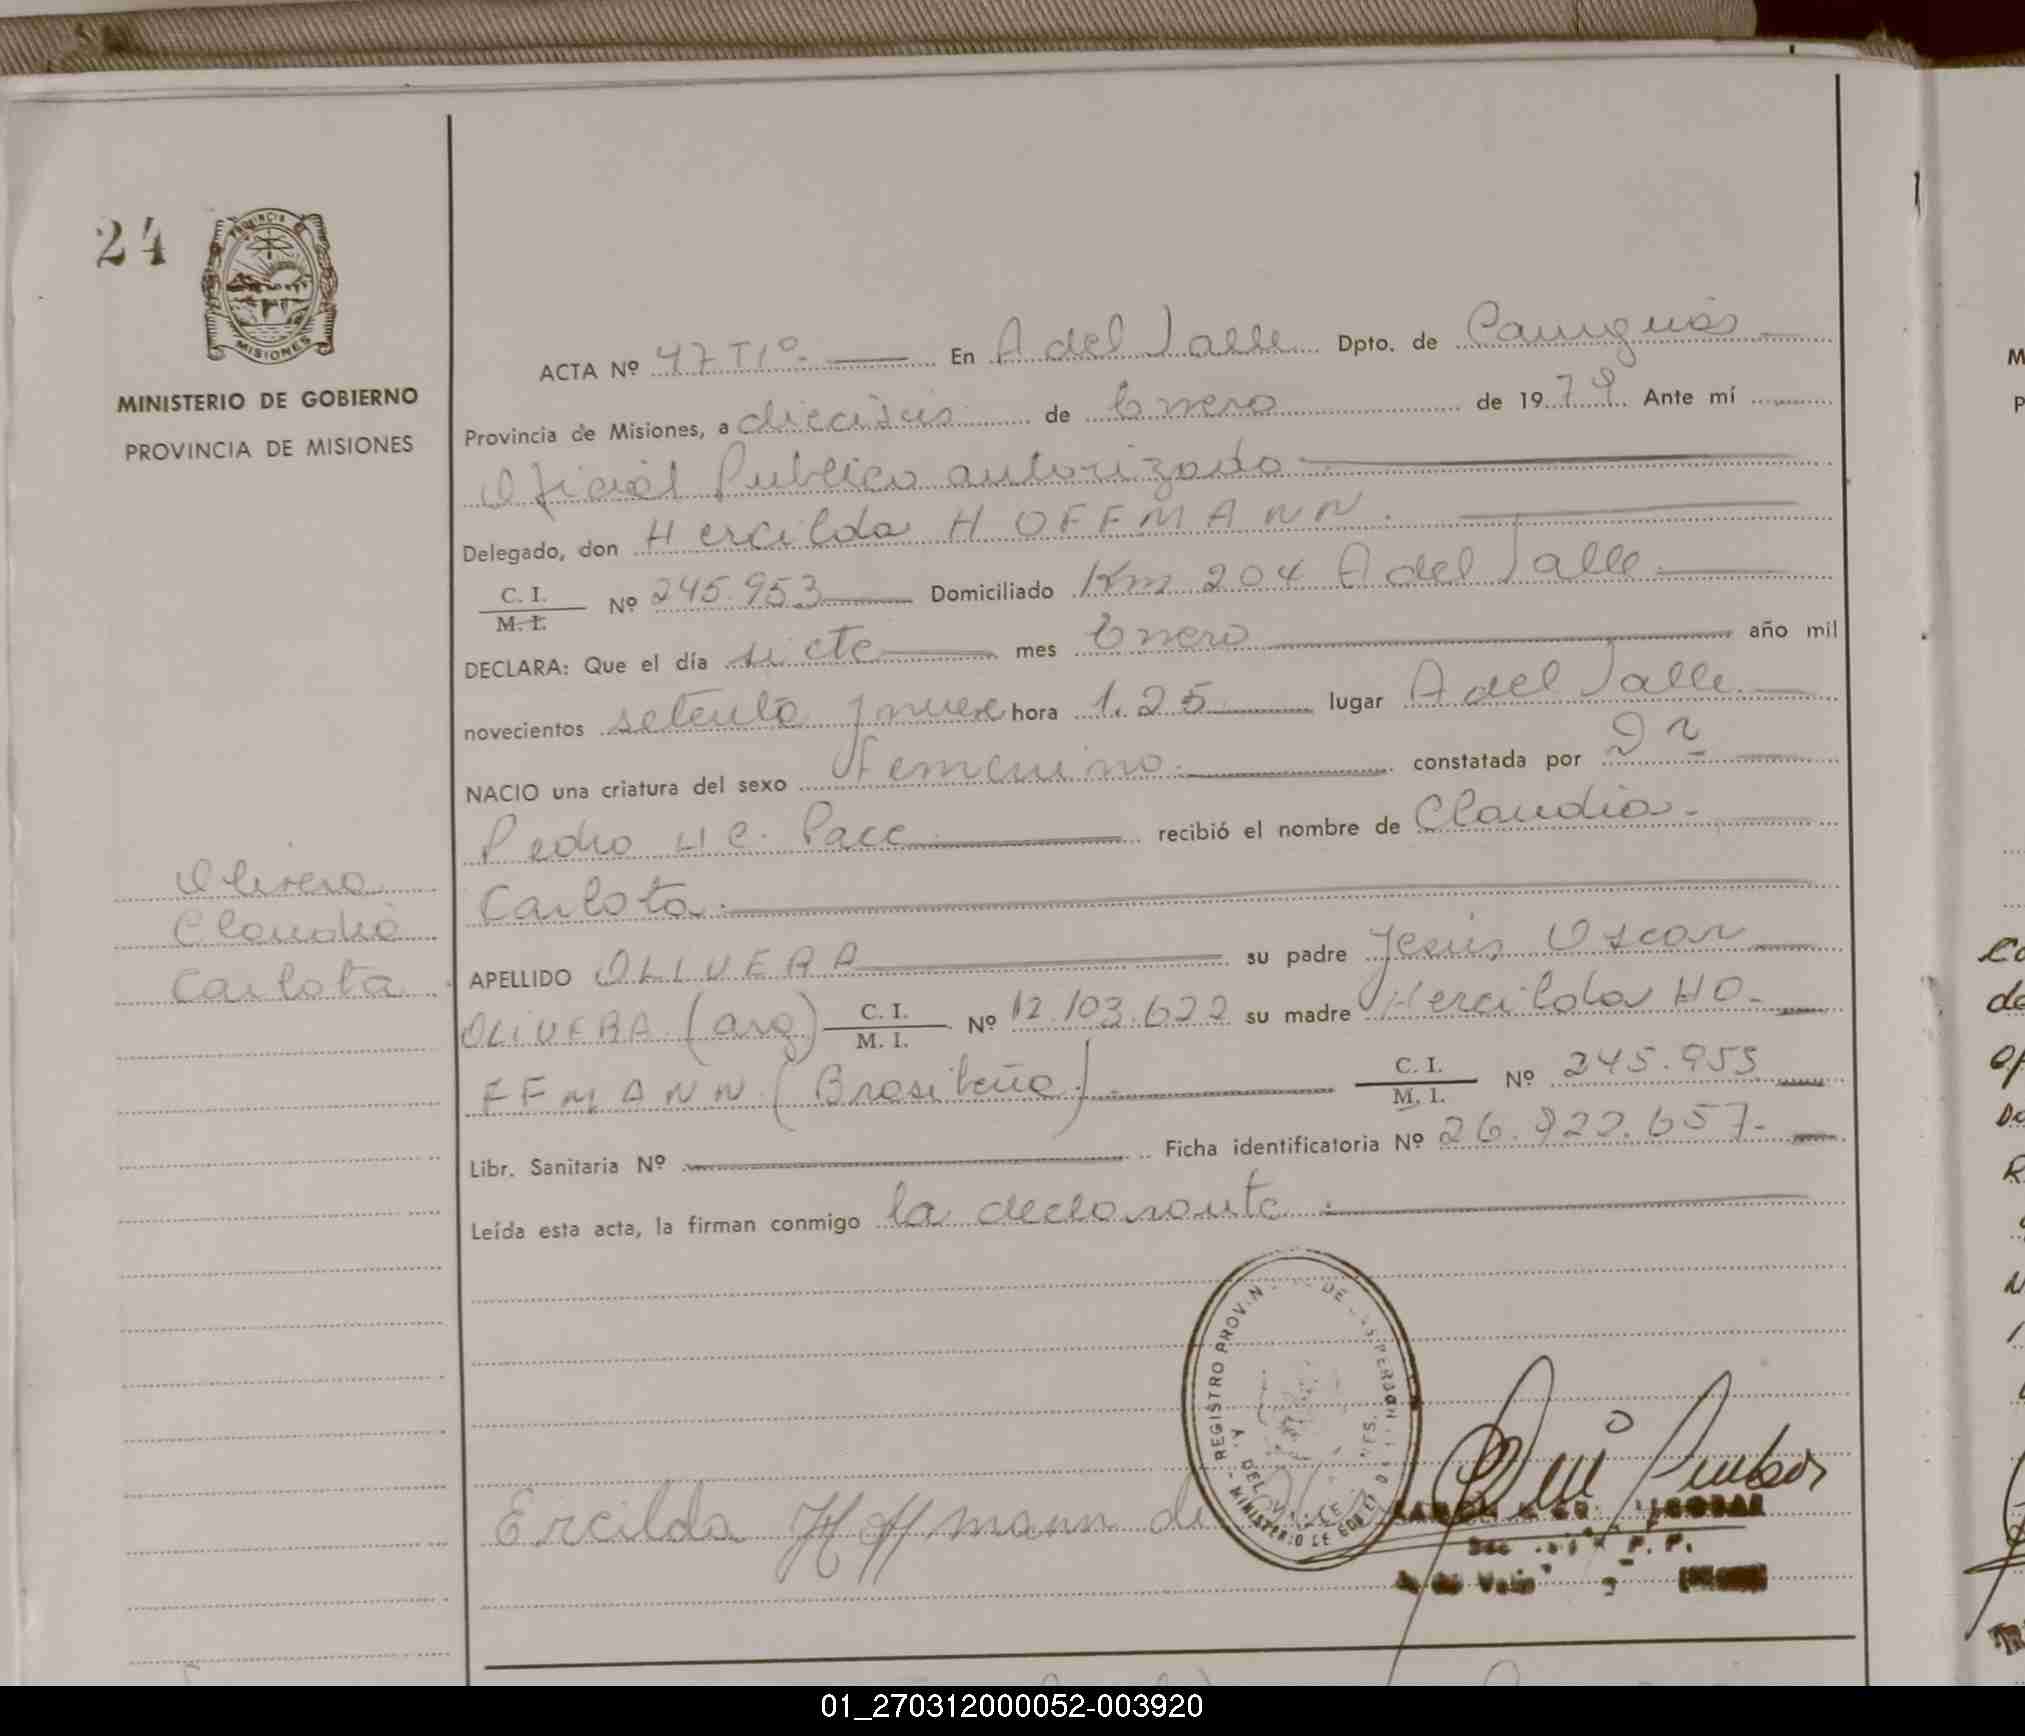 24
PROVINCIA
MISIONES
MINISTERIO DE GOBIERNO
PROVINCIA DE MISIONES
ACTA Nº 47 TIº En A del Valle Dpto. de Cainguás
Provincia de Misiones, a dieciseis de Enero de 1979 Ante mí
Oficial Publico autorizado
Delegado, don Hercilda HOFFMANN.
C. I. / M. I. Nº 245.953 Domiciliado Km 204 A del Valle
DECLARA: Que el día siete mes Enero año mil
novecientos setenta y nueve hora 1.25 lugar A del Valle
NACIO una criatura del sexo femenino. constatada por Dr
Pedro H C. Pace recibió el nombre de Claudia
Carlota.
Olivera
Claudia
Carlota
APELLIDO OLIVERA su padre Jesús Oscar
OLIVERA (arg) C. I. / M. I. Nº 12.103.622 su madre Hercilda HO-
FFMANN (Brasileña). C. I. / M. I. Nº 245.953
Libr. Sanitaria Nº Ficha identificatoria Nº 26.922.657.
Leída esta acta, la firman conmigo la declarante.
REGISTRO PROVIN DE PERSON
A. DEL VALLE
MINISTERIO DE GOBIE
Ercilda Hoffmann de
P. P.
01_270312000052-003920